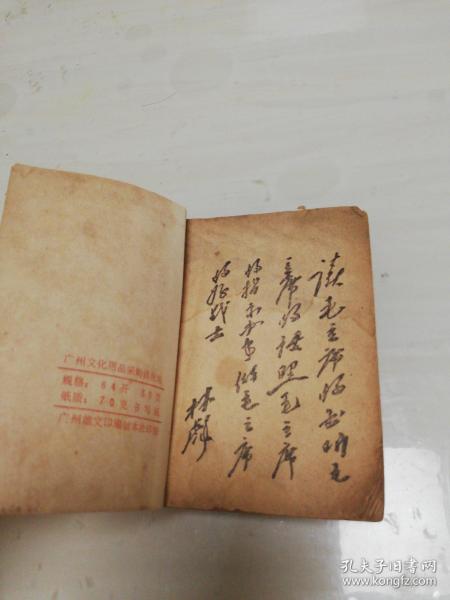 读毛主席的书听毛
主席的话照毛主席
的指示办事做毛主席
的好战士
林彪
广州文化用品采购供应站
规格：64开
纸质：70克书写纸
孔夫子旧书网
www.kongfz.com